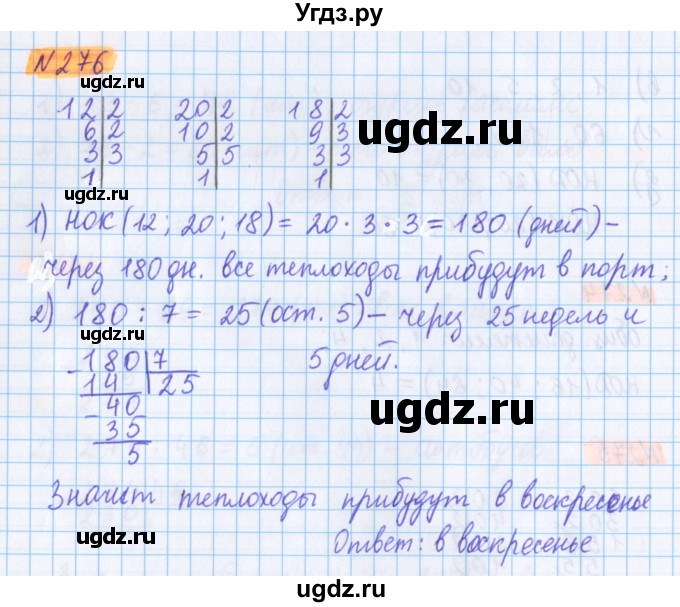 Угдз.ру
N 276
gdz.ru
12 2 20 2 18 2
6 2 10 2 9 3
ugdz.ru
3 3 5 5 3 3
1 1 1
gdz.ru
1) НОК (12; 20; 18) = 20 · 3 · 3 = 180 (дней) –
через 180 дн. все теплоходы прибудут в порт;
2) 180 : 7 = 25 (ост. 5) – через 25 недель и
5 дней.
180 7
14 25
40
35
5
ugdz.ru
Значит теплоходы прибудут в воскресенье
gdz.ru
Ответ: в воскресенье
ugdz.ru